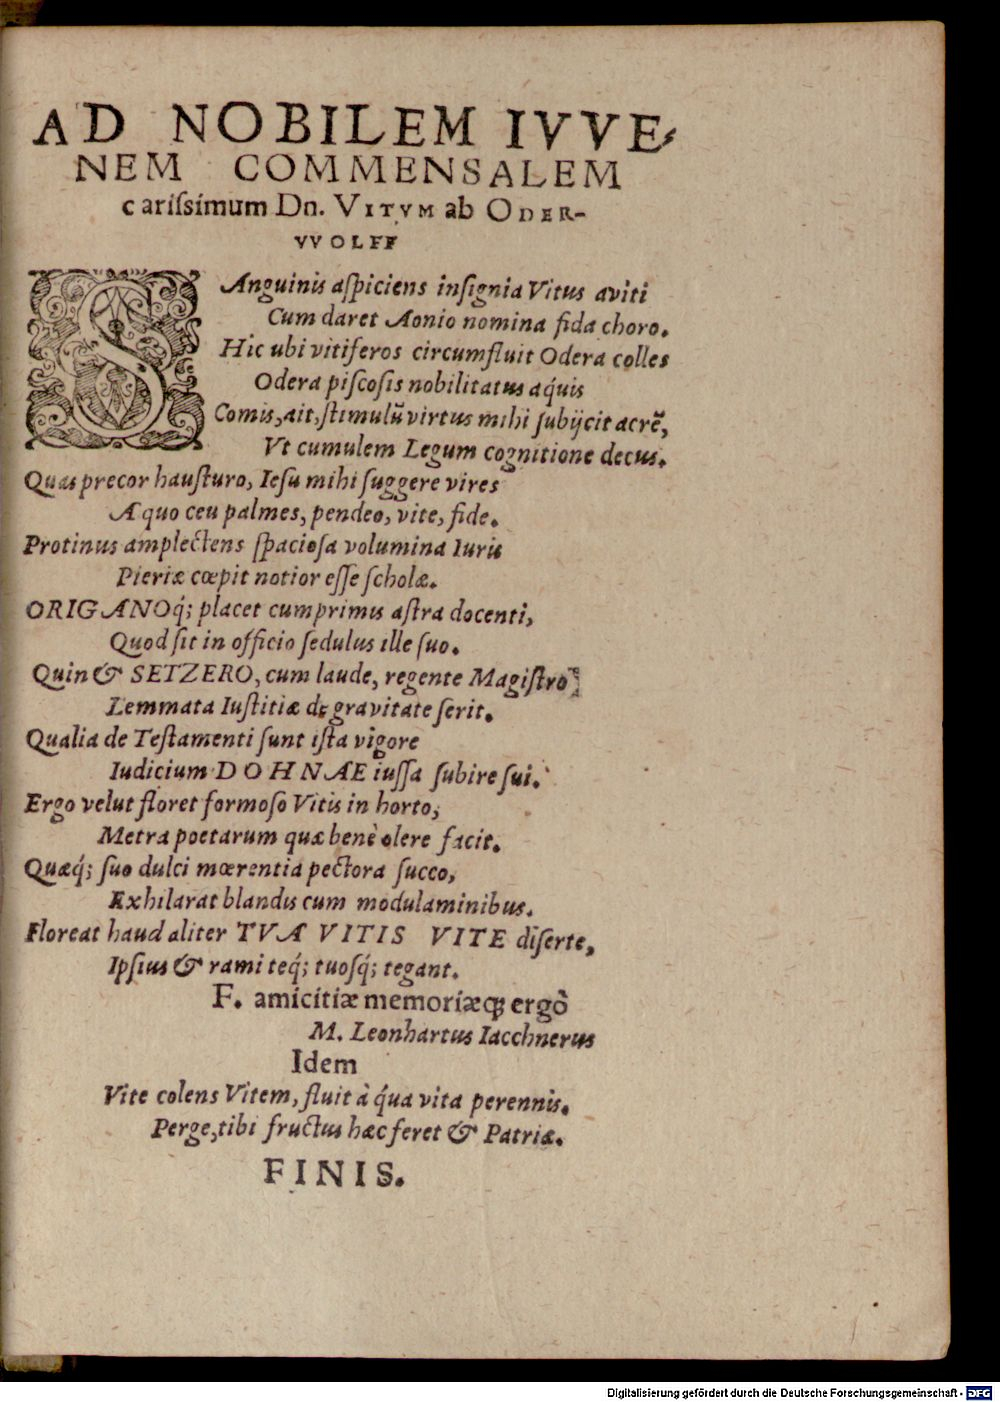 AD NOBILEM IVVE-
NEM COMMENSALEM
cariſsimum Dn. VITVM ab ODER-
VVOLFF
SAnguinis aſpiciens inſignia Vitus aviti
Cum daret Aonio nomina fida choro.
Hic ubi vitiferos circumfluit Odera colles
Odera piſcoſis nobilitatus aq́uis
Comis, ait, ſtimulũ virtus mihi ſubijcit acrẽ,
Vt cumulem Legum cognitione decus.
Quas precor hauſturo, Ieſu mihi ſuggere vires
A quo ceu palmes, pendeo, vite, fide.
Protinus amplectens ſpacioſa volumina Iuris
Pieriæ cœpit notior eſſe ſcholæ.
ORIGANOq́; placet cumprimis aſtra docenti,
Quod ſit in officio ſedulus ille ſuo.
Quin & SETZERO, cum laude, regente Magiſtro
Lemmata Iuſtitiæ de gravitate ſerit.
Qualia de Teſtamenti ſunt iſta vigore
Iudicium DOHNAE iuſſa ſubire ſui.
Ergo velut floret formoſo Vitis in horto,
Metra poetarum quæ benè olere facit.
Quæq́; ſuo dulci mœrentia pectora ſucco,
Exhilarat blandis cum modulaminibus.
Floreat haud aliter TVA VITIS VITE diſerte,
Ipſius & rami teq́; tuoſq́; tegant.
F. amicitiæ memoriæq; ergò
M. Leonhartus Iacchnerus
Idem
Vite colens Vitem, fluit à q́ua vita perennis.
Perge, tibi fructus hæc feret & Patriæ.
FINIS.
Digitalisierung gefördert durch die Deutsche Forschungsgemeinschaft - DFG